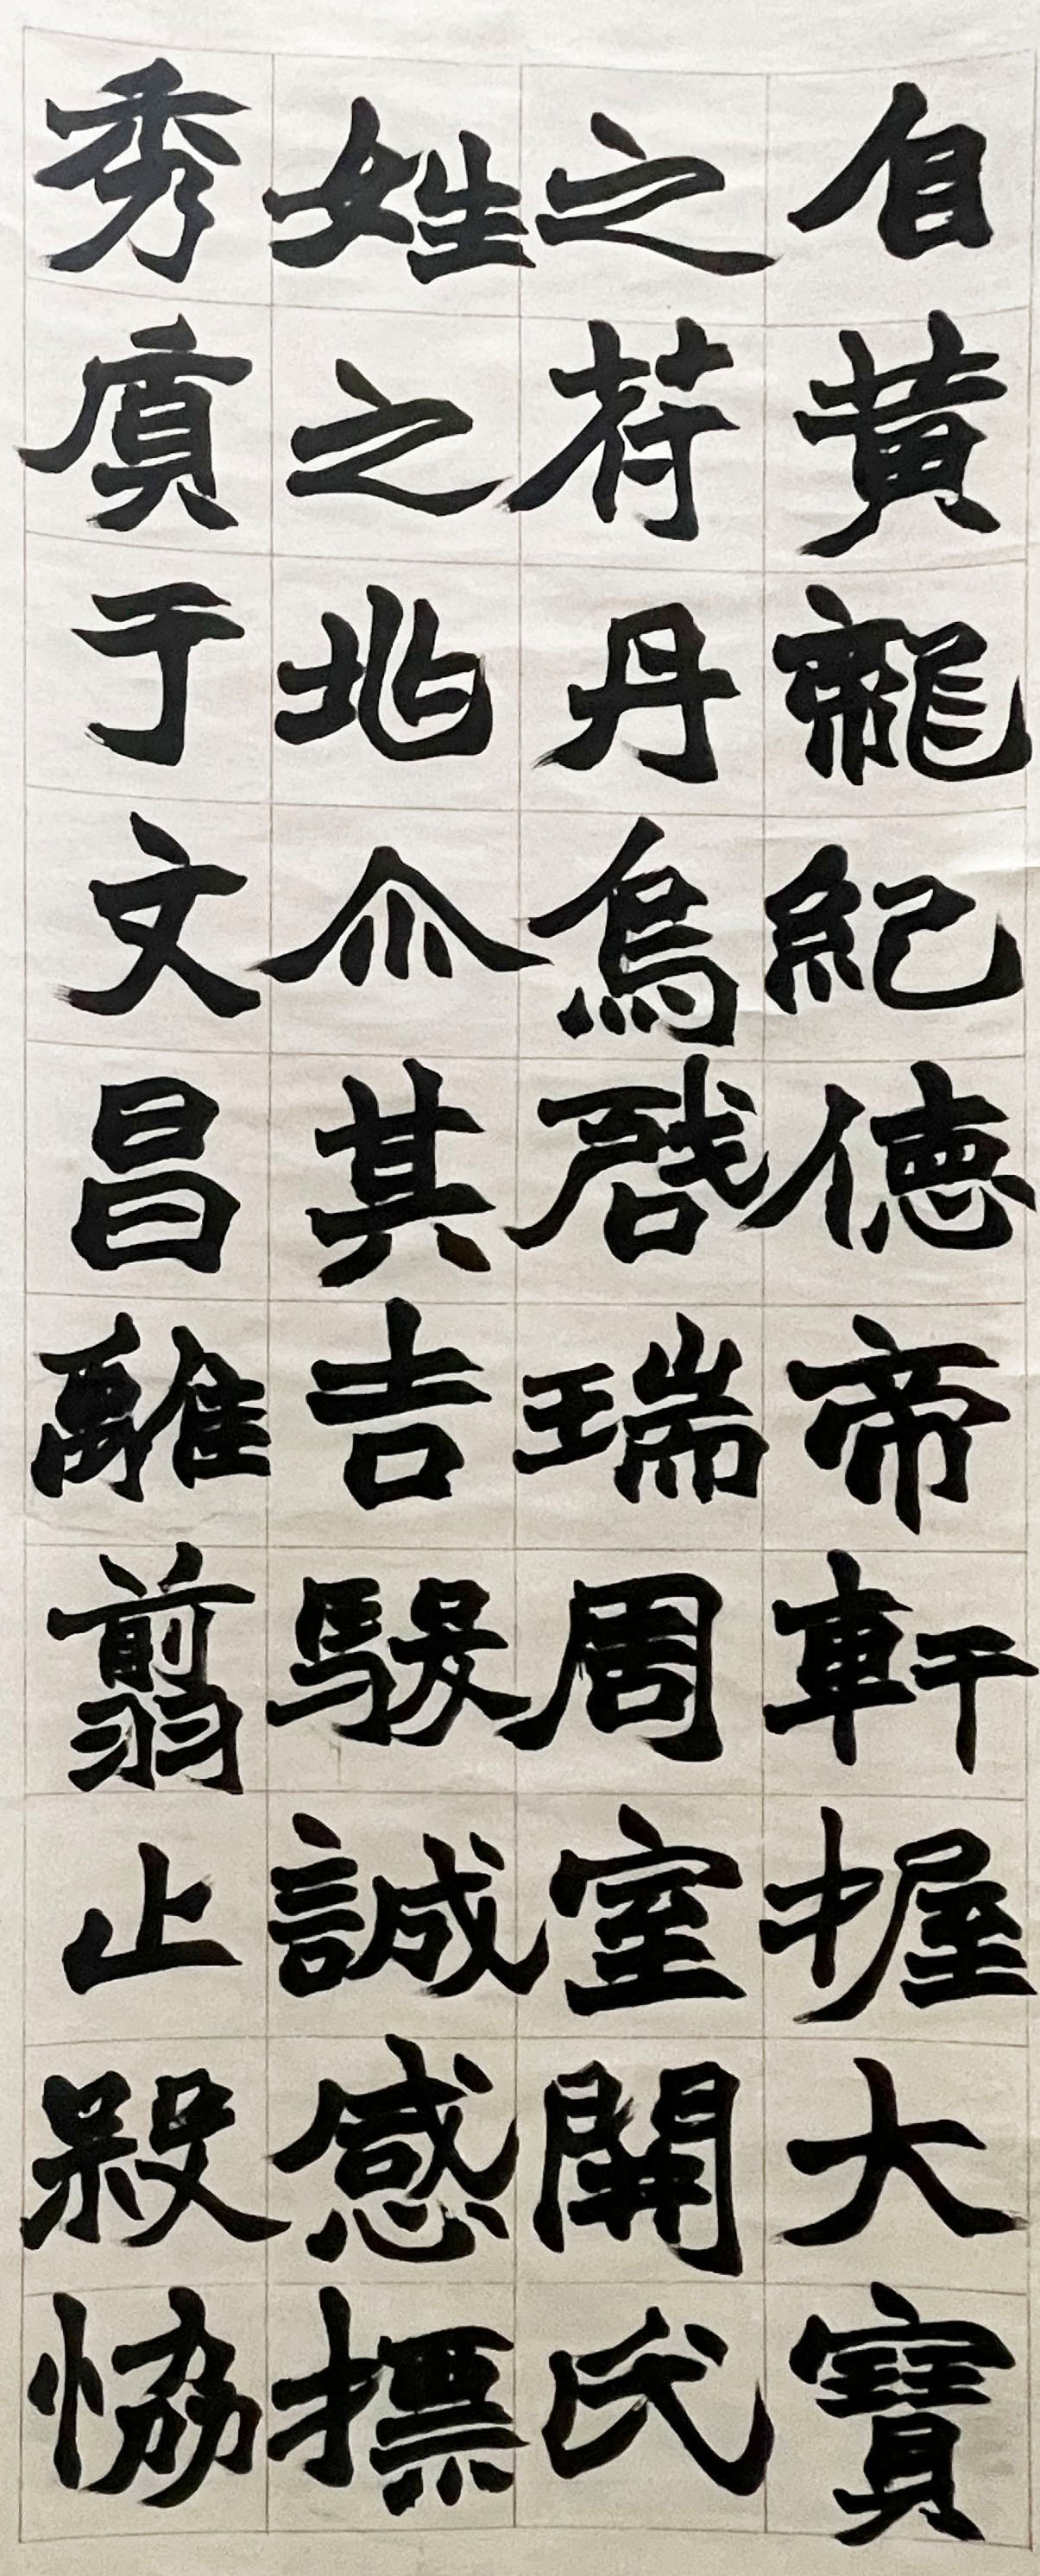 自黃龍紀德帝軒握大寶
之符丹烏啓瑞周室開氏
姓之兆尒其吉駿誠感摽
秀于文昌離翦止殺恊